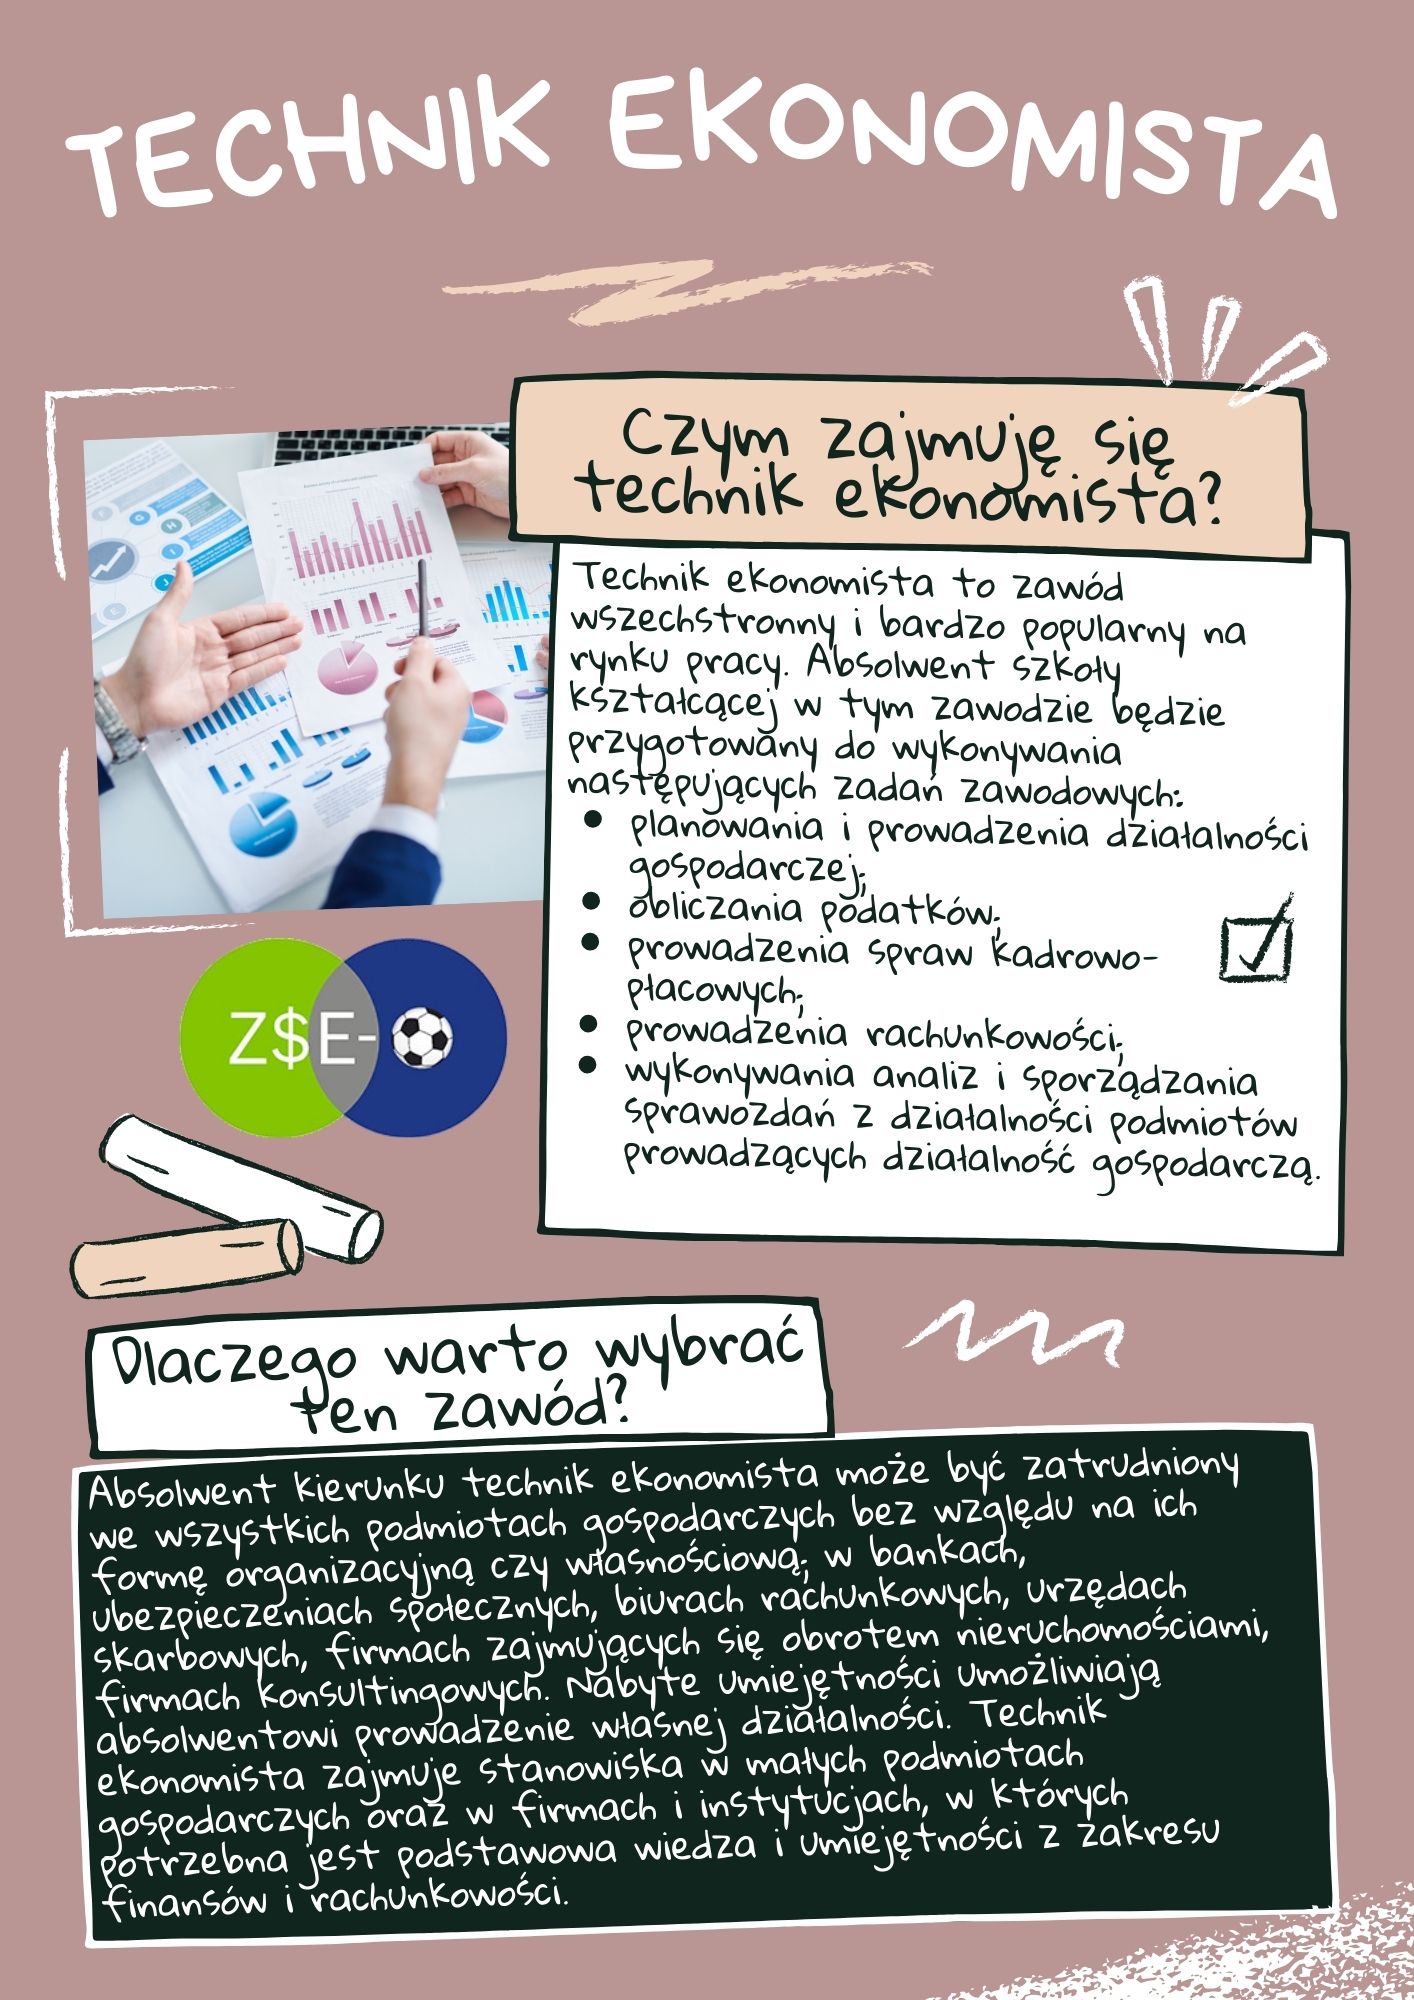 TECHNIK EKONOMISTA
Czym zajmuję się
technik ekonomista?
Technik ekonomista to zawód
wszechstronny i bardzo popularny na
rynku pracy. Absolwent szkoły
kształcącej w tym zawodzie będzie
przygotowany do wykonywania
następujących zadań zawodowych:
planowania i prowadzenia działalności
gospodarczej;
obliczania podatków;
prowadzenia spraw kadrowo-
płacowych;
prowadzenia rachunkowości;
wykonywania analiz i sporządzania
sprawozdań z działalności podmiotów
prowadzących działalność gospodarczą.
Z$E-
Dlaczego warto wybrać
ten zawód?
Absolwent kierunku technik ekonomista może być zatrudniony
we wszystkich podmiotach gospodarczych bez względu na ich
formę organizacyjną czy własnościową; w bankach,
ubezpieczeniach społecznych, biurach rachunkowych, urzędach
skarbowych, firmach zajmujących się obrotem nieruchomościami,
firmach konsultingowych. Nabyte umiejętności umożliwiają
absolwentowi prowadzenie własnej działalności. Technik
ekonomista zajmuje stanowiska w małych podmiotach
gospodarczych oraz w firmach i instytucjach, w których
potrzebna jest podstawowa wiedza i umiejętności z zakresu
finansów i rachunkowości.